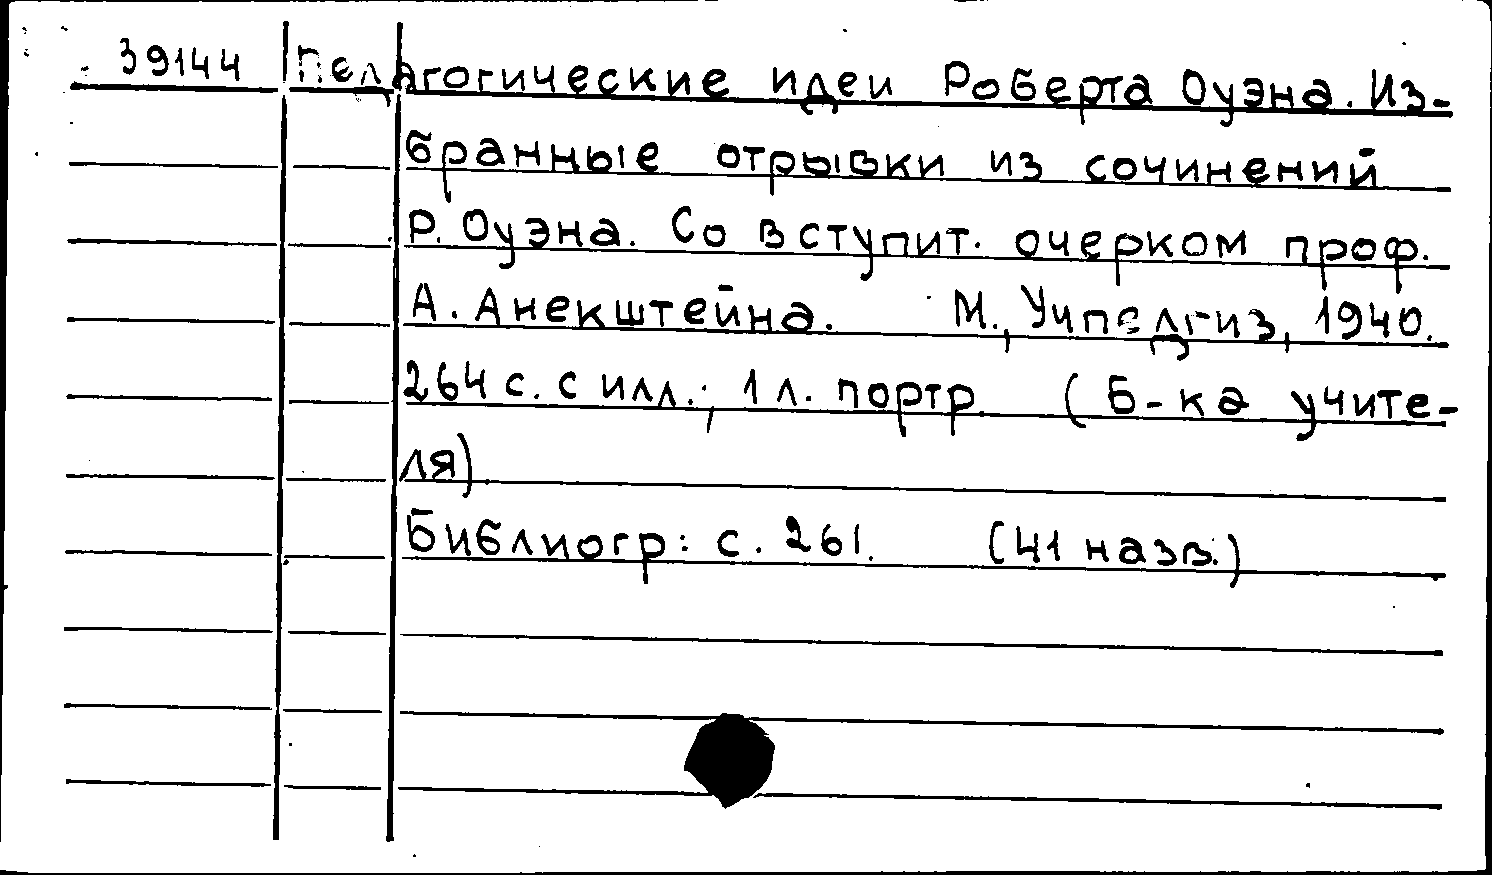 39144 Педагогические идеи Роберта Оуэна. Из-
бранные отрывки из сочинений
Р. Оуэна. Со вступит. очерком проф.
А. Анекштейна. М., Учпедгиз, 1940.
264 с. с илл.; 1 л. портр. (Б-ка учите-
ля)
Библиогр: с. 261. (41 назв.)